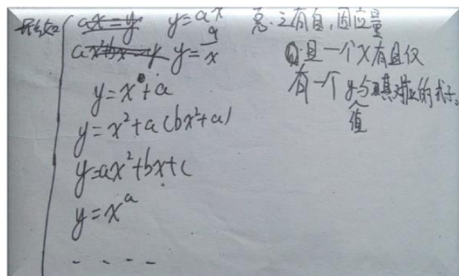 形如 y=ax
y=a/x
y=x+a
y=x²+a(bx²+a)
y=ax²+bx+c
y=x^a
.....
意:之有自,因应量
且一个X有且仅
有一个y值与其对应的式子。